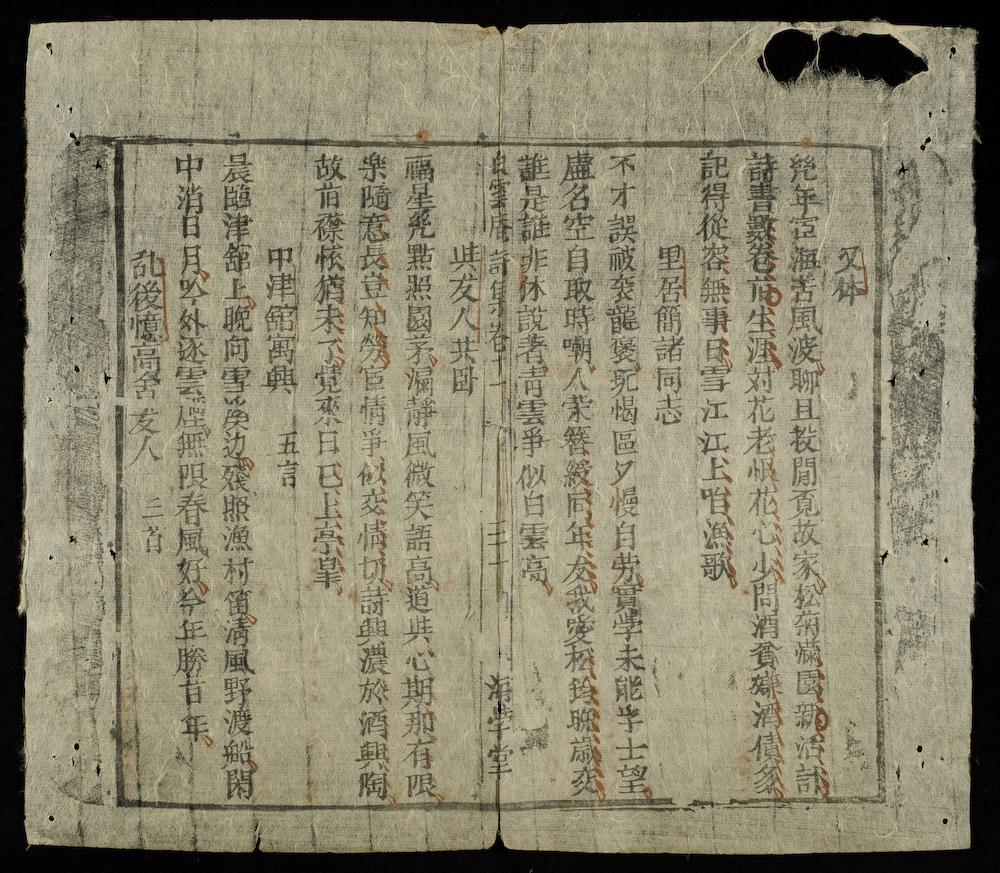 又体
幾年宦海苦風波聊且投閒覓故家松菊滿園新活計
詩書數卷旧生涯対花老恨花心少問酒貧嫌酒債多
記得從容無事日雪江江上咱漁歌
里居簡諸同志
不才誤被袞龍褒玩愒區夕慢自劳實學未能孚士望
虛名空自取時嘲人荣簪綬同年友我愛松筠晚歳交
誰是誰非休說着青雲爭似白雲高
白雲庵詩集卷十一 三一 海学堂
與友人共卧
福星幾點照園茅漏靜風微笑語高道與心期那有限
楽隨意長豈知勞宦情爭似交情切詩興濃於酒興陶
故旧襟懐猶未了覚來日已上亭皐
中津舘寓興 五言
晨臨津舘上晚向雪溪边殘照漁村笛淸風野渡船閑
中消日月吟外逐雲煙無限春風好今年勝昔年
乱後憶高舍友人 三首